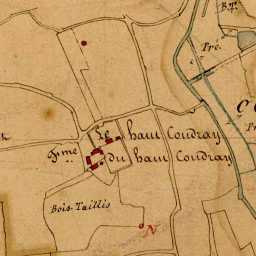 Pré
le haut Coudray
fme du haut Coudray
Bois-Taillis
N